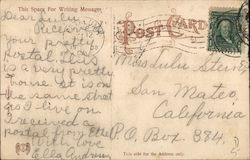 This Space For Writing Messages
POST CARD
Dear Lulu,
Received
your pretty
postal. This
is a very pretty
house. It is on
the same street
as I live on.
I received a
postal from Etta
With love
Ella
Miss Lulu
San Mateo,
California
P.O. Box 884.
This side for the Address only.